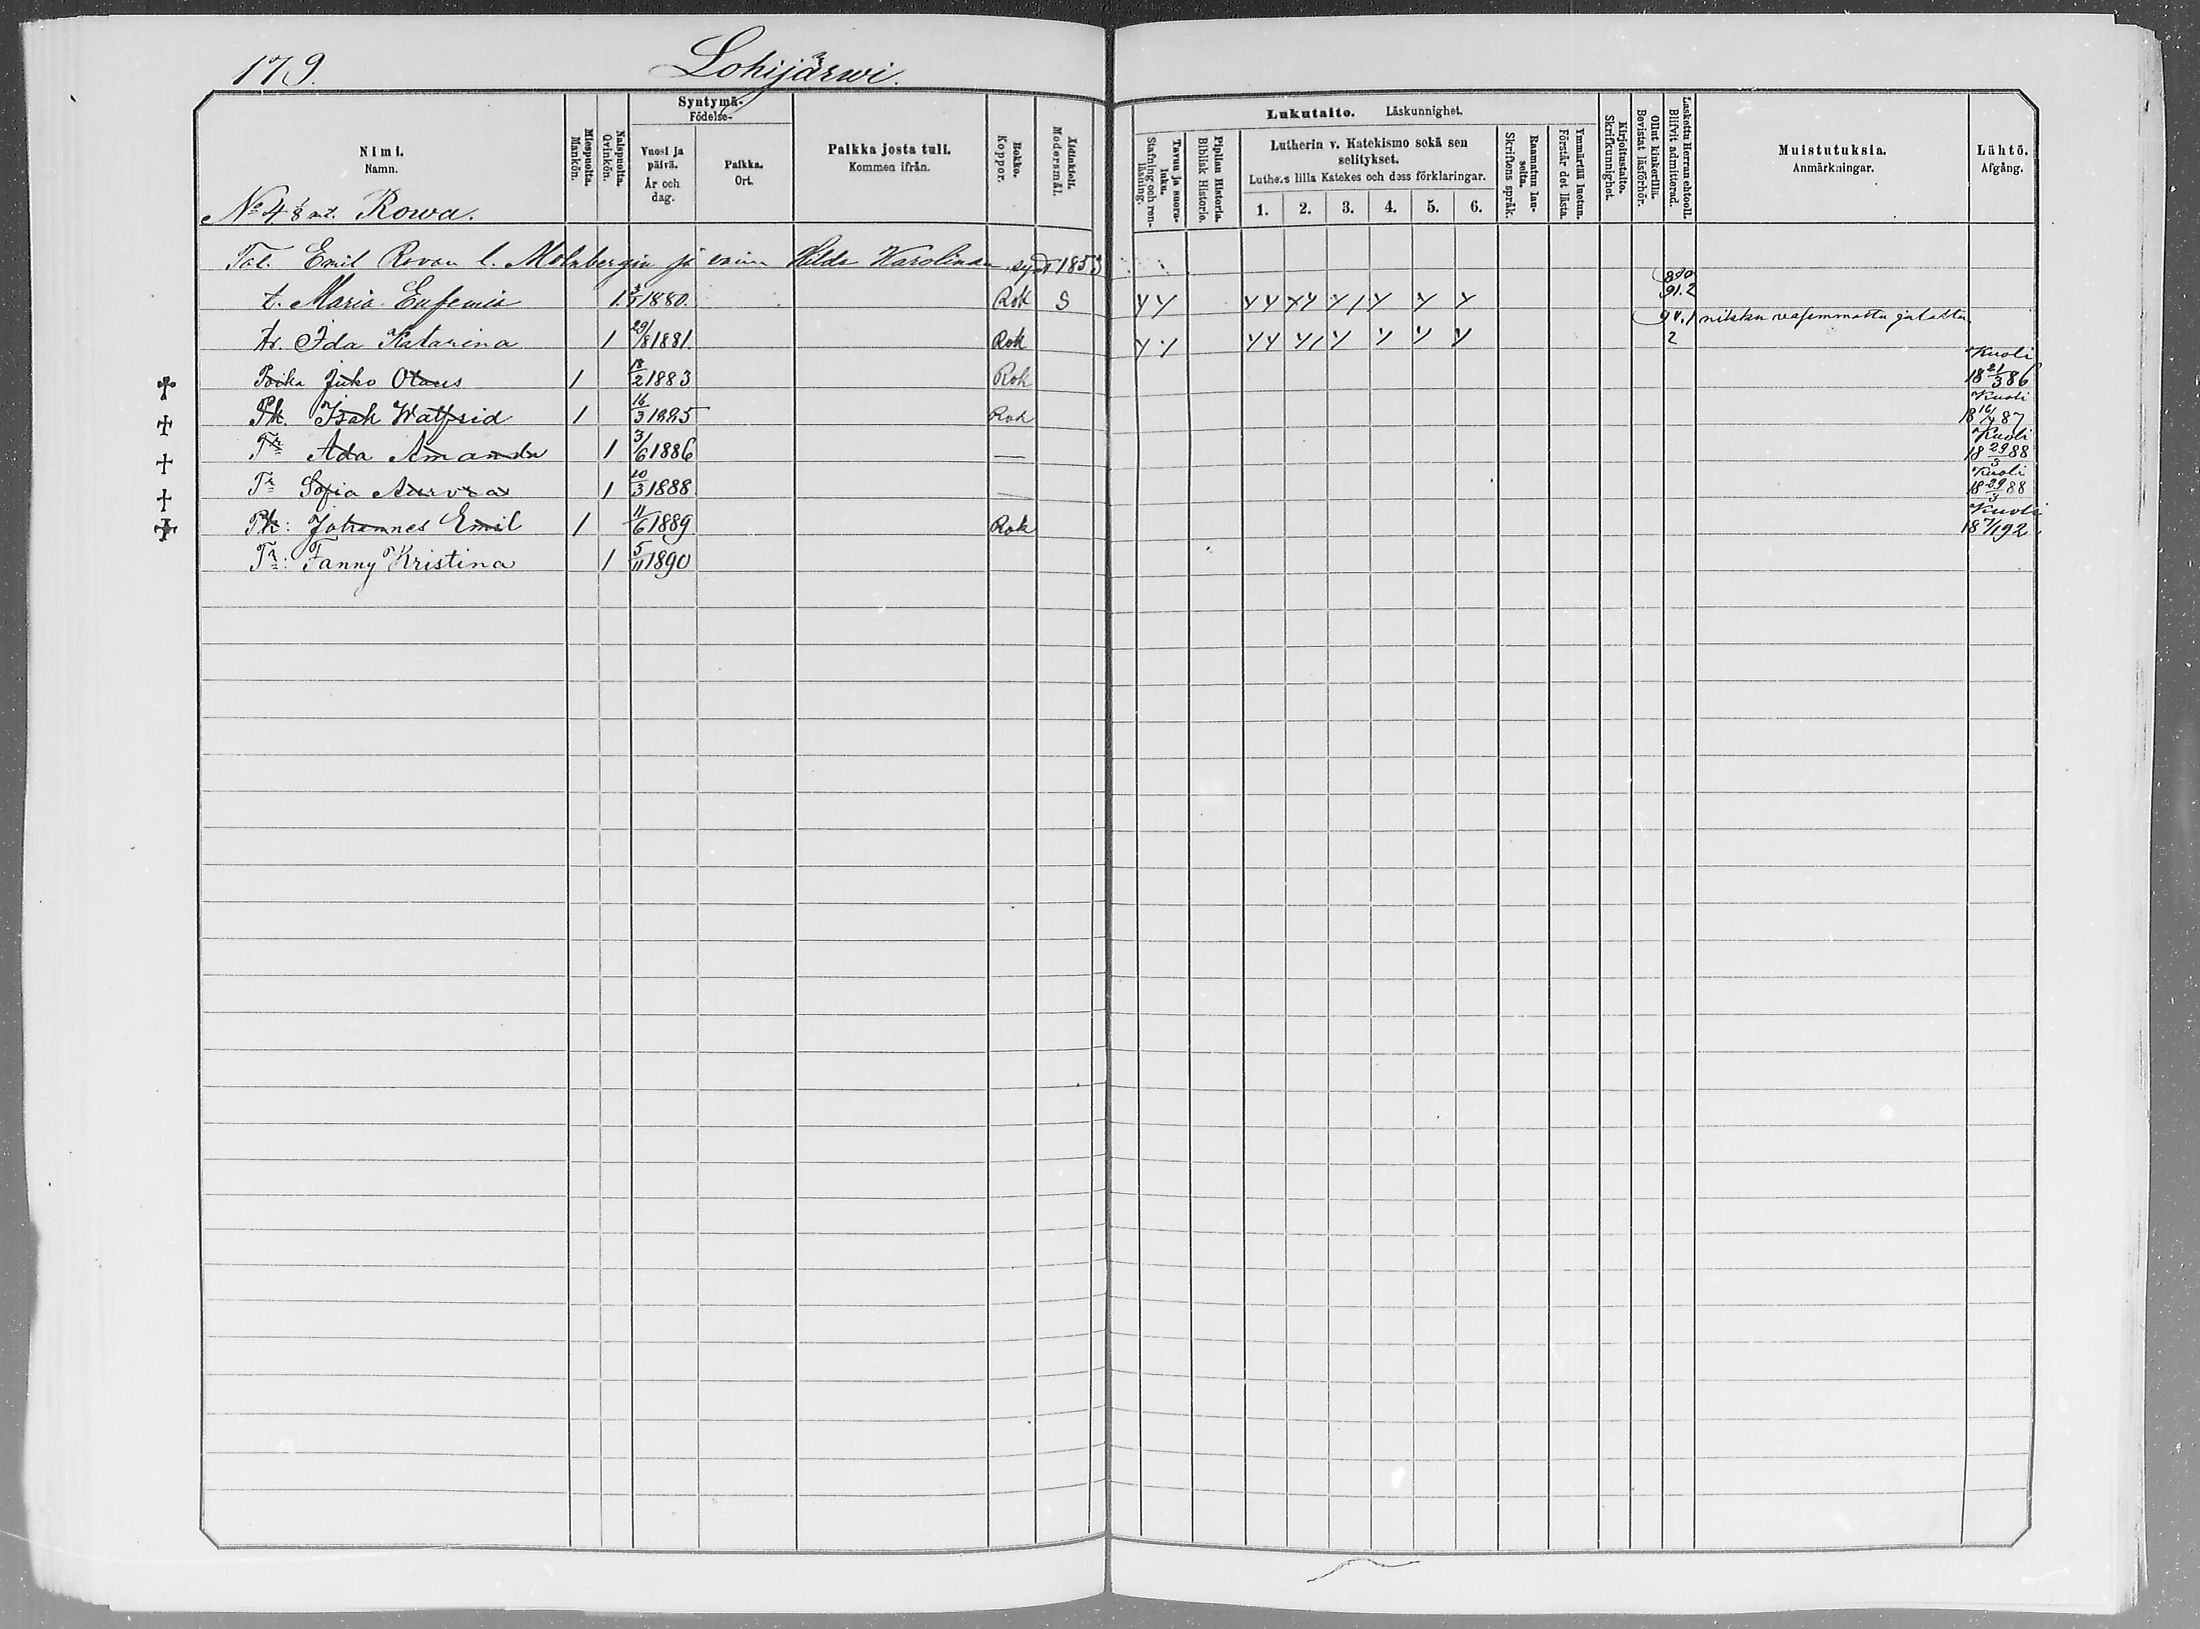 179.
Lohijärwi.
Nimi.
Namn.
Miespuolta.
Mankön.
Naispuolta.
Qvinkön.
Syntymä-
Födelse-
Vuosi ja päivä.
År och dag.
Paikka.
Ort.
Paikka josta tuli.
Kommen ifrån.
Rokko.
Koppor.
Äidinkieli.
Modersmål.
Lukutaito. Läskunnighet.
Tavuu ja suora-luku.
Stafning och ren-läsning.
Piplian Historia.
Biblisk Historie.
Lutherin v. Katekismo sekä sen selitykset.
Luthers lilla Katekes och dess förklaringar.
1. 2. 3. 4. 5. 6.
Raamatun lau-seita.
Skriftens språk.
Ymmärtää luetun.
Förstår det lästa.
Kirjoitustaito.
Skrifkunnighet.
Ollut kinkerillä.
Bevistat läsförhör.
Laskettu Herran ehtooll.
Blifvit admitterad.
Muistutuksia.
Anmärkningar.
Lähtö.
Afgång.
No 4 1/8 mt. Rowa.
Tal. Emil Rovan l. Malmbergin ja vaim Hilda Karolinan synt 1853
t. Maria Eufemia 1. 1880. Rok S 890 91.2
tr. Ida Katarina 1 29/8 1881. Rok 90.1 2 nilkku vasemmatta jalatta
Poika Juho Olaus 1 18/2 1883 Rok Kuoli 18 21/3 86
Pk. Isak Walfrid 1 16/3 1885 Rok Kuoli 18 16/4 87
Tr Ada Amanda 1 3/6 1886 — Kuoli 18 29/3 88
Tr Sofia Aurora 1 10/3 1888. — Kuoli 18 29/3 88
Pk: Johannes Emil 1 11/6 1889. Rok Kuoli 18 7/1 92.
Tr: Fanny Kristina 1 5/11 1890